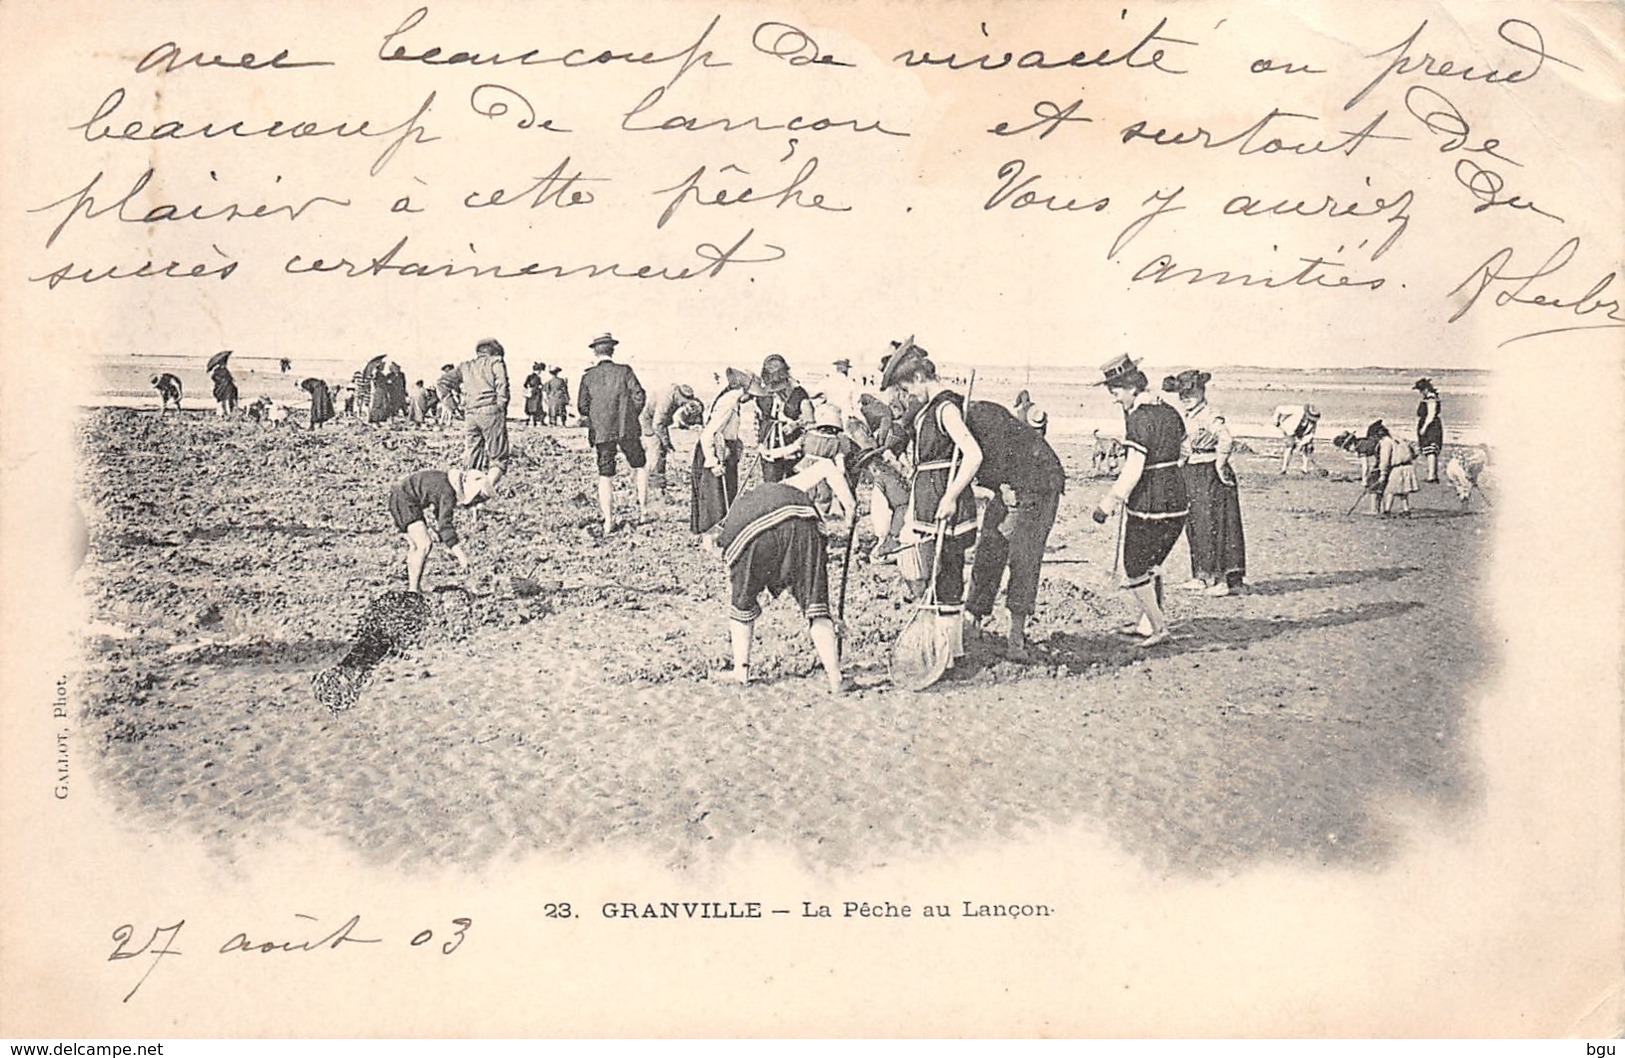 avec beaucoup de vivacité on prend
beaucoup de lançon et surtout de
plaisir à cette pêche. Vous y auriez du
succès certainement. amitiés.
GALLOT, Phot.
23. GRANVILLE — La Pêche au Lançon.
27 août 03
www.delcampe.net
bgu